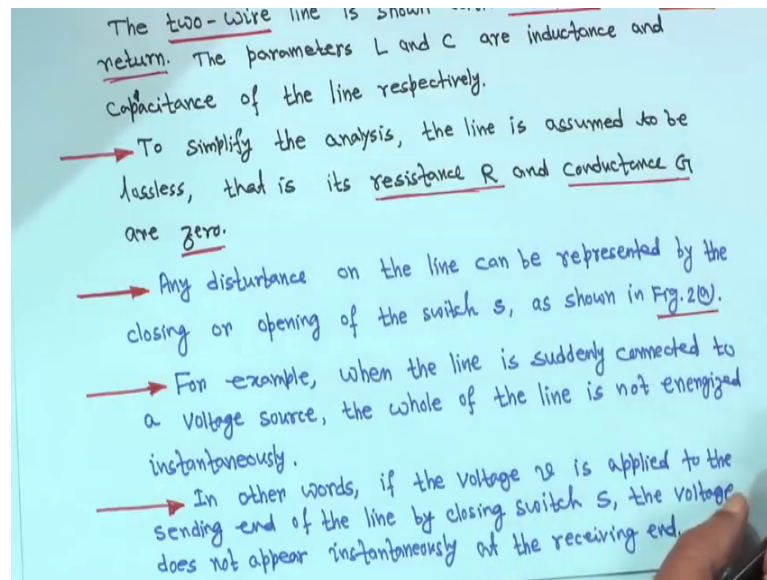 The two-wire line is shown
return. The parameters L and C are inductance and
Capacitance of the line respectively.
To simplify the analysis, the line is assumed to be
lossless, that is its resistance R and Conductance G
are zero.
Any disturbance on the line can be represented by the
closing or opening of the switch S, as shown in Fig.2(a).
For example, when the line is suddenly connected to
a voltage source, the whole of the line is not energized
instantaneously.
In other words, if the voltage v is applied to the
sending end of the line by closing switch S, the voltage
does not appear instantaneously at the receiving end.